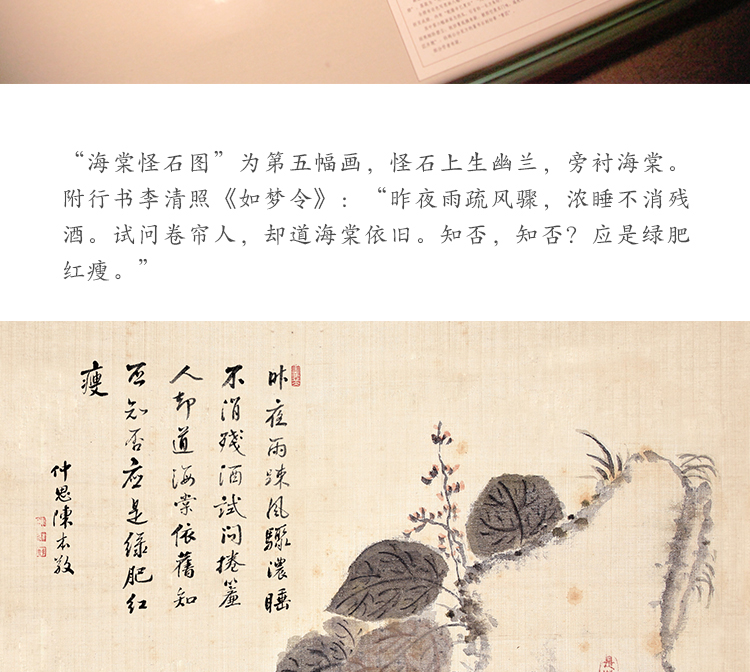 “海棠怪石图”为第五幅画，怪石上生幽兰，旁衬海棠。
附行书李清照《如梦令》：“昨夜雨疏风骤，浓睡不消残
酒。试问卷帘人，却道海棠依旧。知否，知否？应是绿肥
红瘦。”
昨夜雨疎风驟濃睡
不消殘酒試问捲簾
人却道海棠依舊知
否知否应是绿肥红
瘦
仲思陳本敬